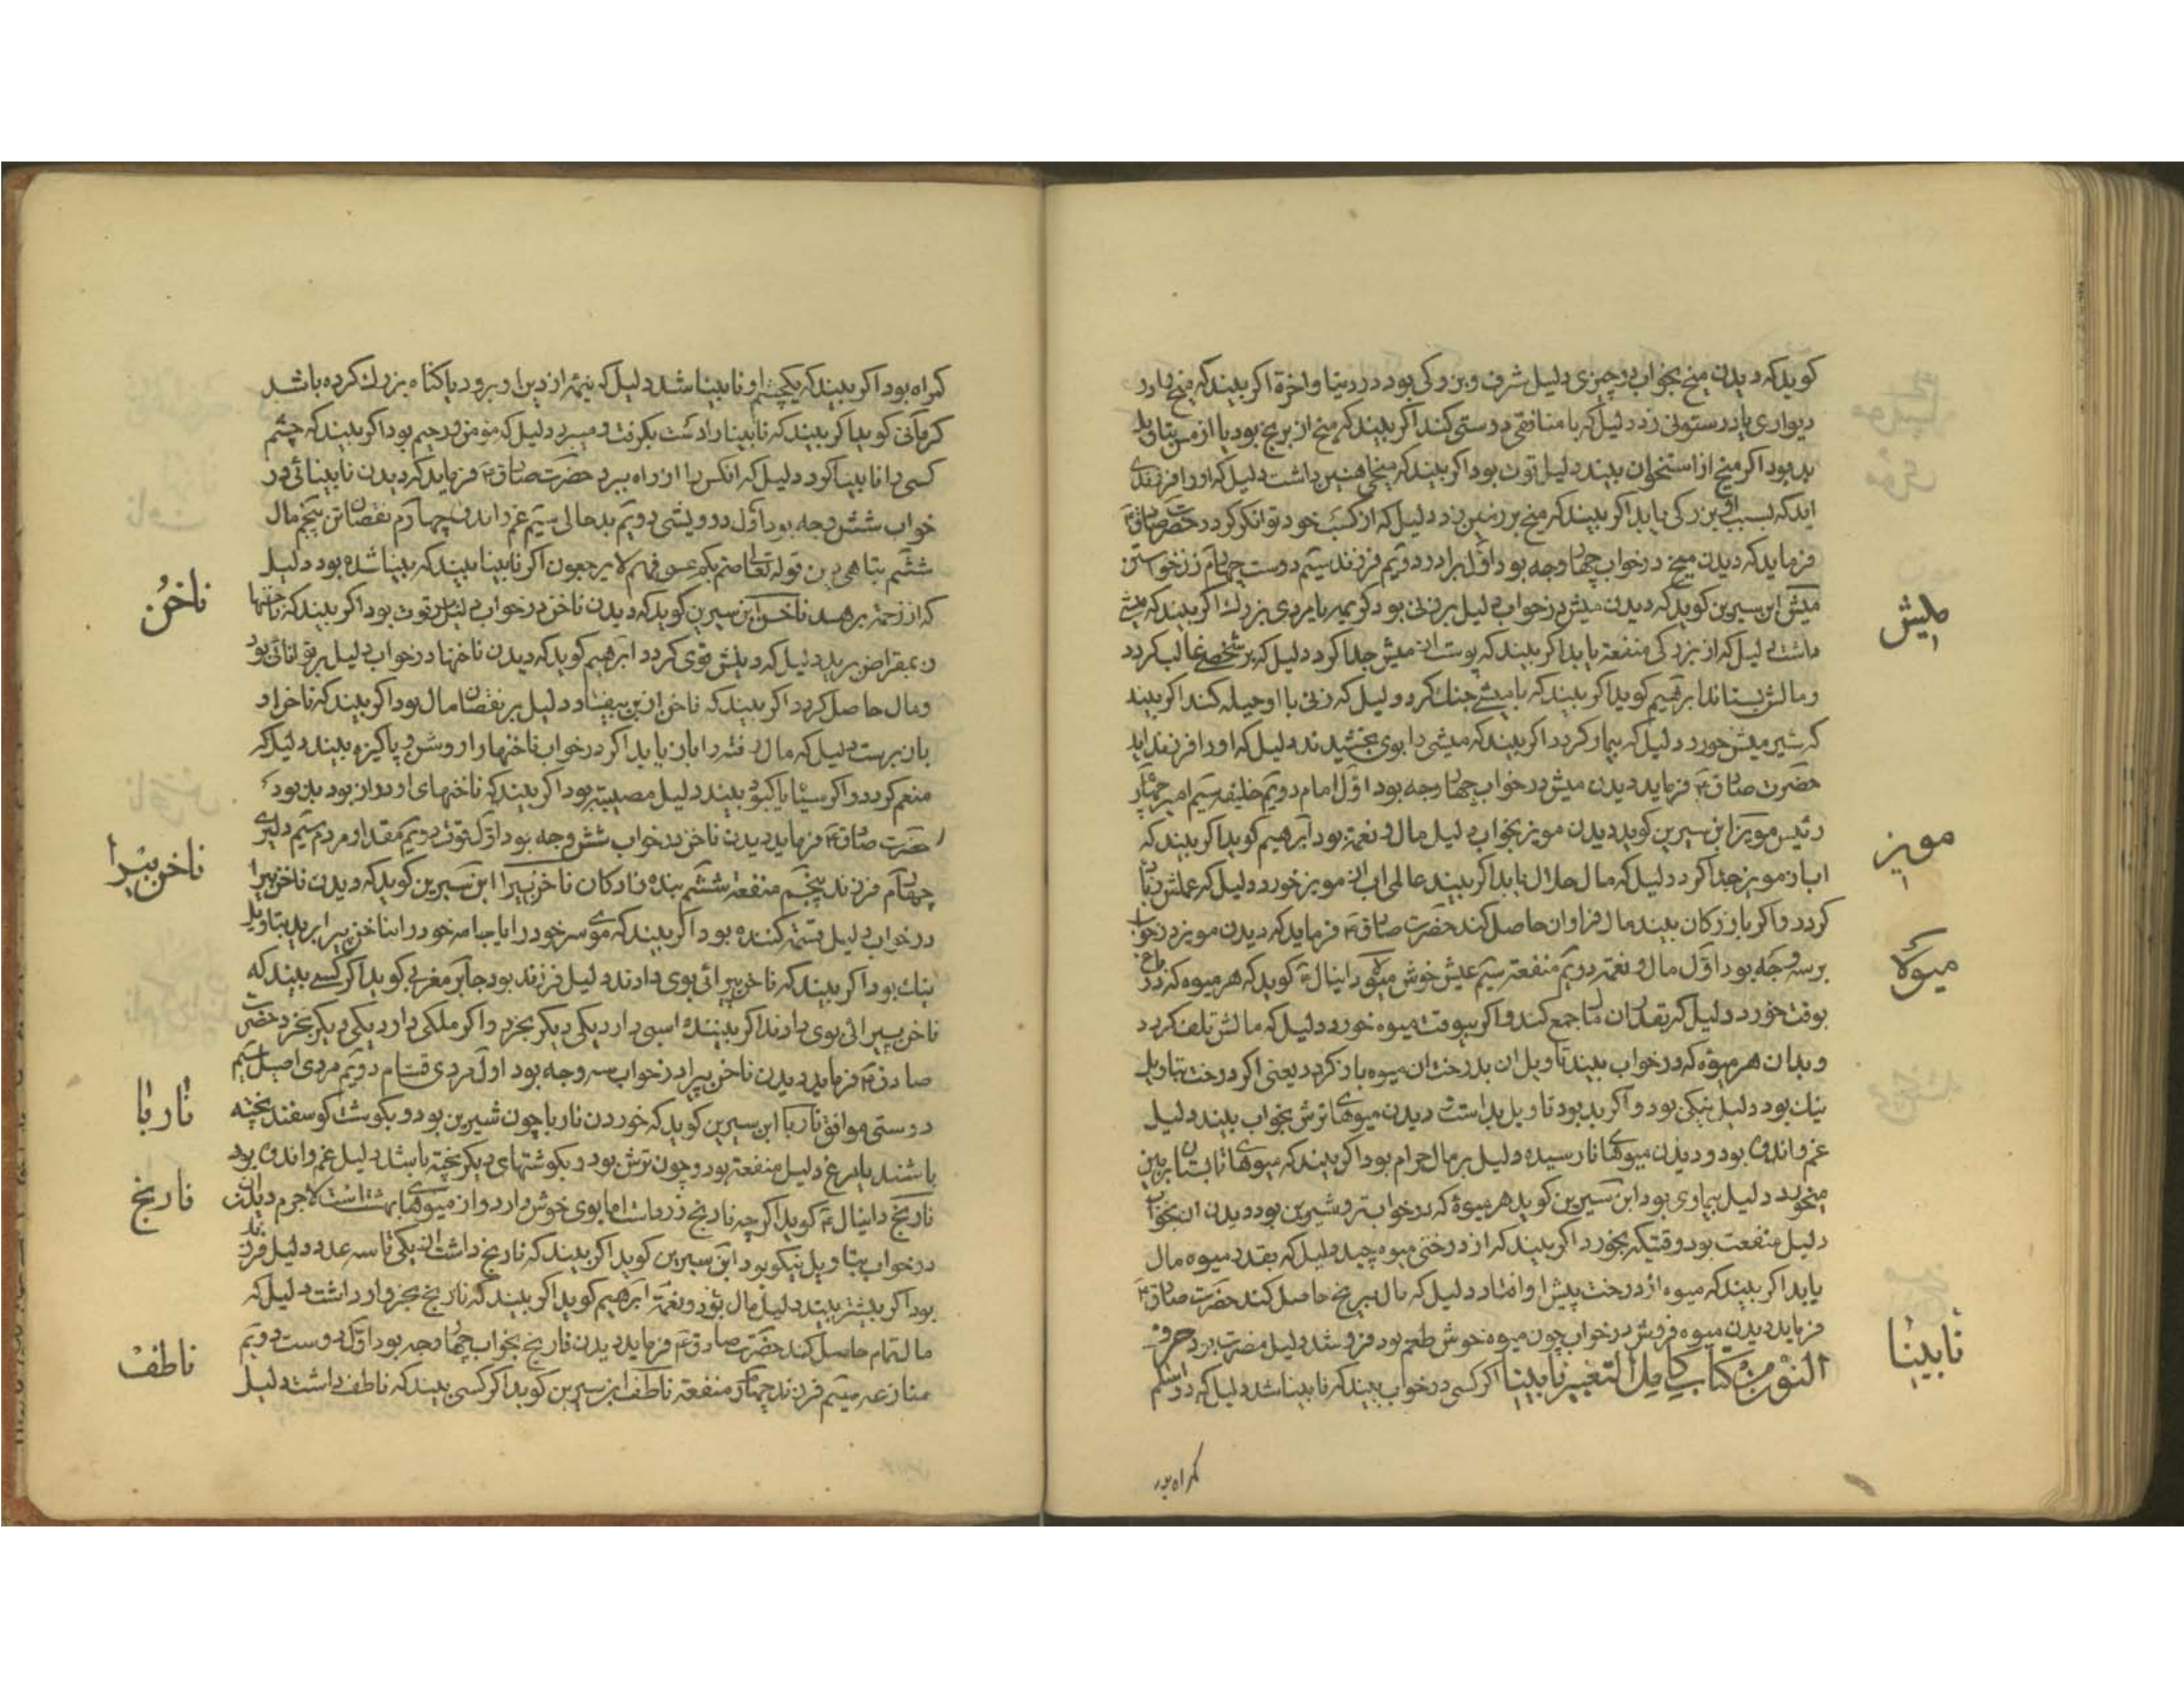 کویدکه دیدن میخ بخواب در چیزی دلیل شرف و بزرکی بود در دنیا و اخرة اکر بیند که میخ را در
دیواری یا در ستونی زد دلیل که با منافقی دوستی کند اکر بیند که میخ از برنج بود یا از مس بتاویل
بد بود اکر میخ از استخوان بیند دلیل قوت بود اکر بیند که میخ اهنین داشت دلیل که او را فرزندی
اید که بسبب او بزرکی یابد اکر بیند که میخ بر زمین زد دلیل که از کسب خود توانکر کردد حضرت صادق ع
فرماید که دیدن میخ در خواب چهار وجه بود اول برادر دویم فرزند سیم دوست چهارم زن خواستن
میش ابن سیرین کوید که دیدن میش در خواب دلیل بر زنی بود کریمه یا مردی بزرك اکر بیند که میش
داشت دلیل که از بزرکی منفعة یابد اکر بیند که پوست از میش جدا کرد دلیل که بر شخصی غالب کردد
و مالش بستاند ابرهیم کوید اکر بیند که با میشی جنك کرد دلیل که زنی با او حیله کند اکر بیند
که شیر میش خورد دلیل که بیمار کردد اکر بیند که میشی را بوی بخشیدند دلیل که او را فرزند اید
حضرت صادق ع فرماید دیدن میش در خواب چهار وجه بود اول امام دویم خلیفه سیم امیر چهارم
رئیس مویز ابن سیرین کوید دیدن مویز بخواب دلیل مال و نعمة بود ابرهیم کوید اکر بیند که
اب از مویز جدا کرد دلیل که مال حلال یابد اکر بیند عالمی اب از مویز خورد دلیل که عملش زیاد
کردد و اکر بازرکان بیند مال فراوان حاصل کند حضرت صادق ع فرماید که دیدن مویز در خواب
بر سه وجه بود اول مال و نعمة دویم منفعة سیم عیش خوش میوه دانیال ع کوید که هر میوه که در
بوقت خورد دلیل که بقدر ان مال جمع کند و اکر بیوقت میوه خورد دلیل که مالش تلف کردد
و بدان هر میوه که در خواب بیند تاویل ان بدرخت ان میوه باز کردد یعنی اکر درخت بتاویل
نیك بود دلیل نیکی بود و اکر بد بود تاویل بد است و دیدن میوهای ترش بخواب بیند دلیل
غم و اندوه بود و دیدن میوهای نارسیده دلیل بر مال حرام بود اکر بیند که میوهای تابستان بر زمین
میخورد دلیل بیماری بود ابن سیرین کوید هر میوۀ که در خواب تر و شیرین بود دیدن ان بخواب
دلیل منفعت بود وقتیکه بخورد اکر بیند که از درختی میوه چید دلیل که بقدر میوه مال
یابد اکر بیند که میوه از درخت پیش او افتاد دلیل که مال بیرنج حاصل کند حضرت صادق ع
فرماید دیدن میوه فروش در خواب چون میوه خوش طعم بود فروشد دلیل مضرت بود حرف
النون من کتاب کامل التعبیر نابینا اکر کسی در خواب بیند که نابینا شد دلیل که در اسلم
میش
مویز
میوۀ
نابینا
کمراه بود
کمراه بود اکر بیند که یکچشم او نابینا شد دلیل که نیمۀ از دین او برود یا کناه بزرك کرده باشد
کرمانی کوید اکر بیند که نابینا را دست بکرفت و میبرد دلیل که مومن و رحیم بود اکر بیند که چشم
کسی را نابینا کرد دلیل که انکس را از راه ببرد حضرت صادق ع فرماید که دیدن نابینائی در
خواب شش وجه بود اول درویشی دویم بد حالی سیم غم و اندوه چهارم نقصان تن پنجم مال
ششم تباهی دین قوله تعالی صم بکم عمی فهم لا یرجعون اکر نابینا بیند که بینا شده بود دلیل
که از زحمة برهد ناخن ابن سیرین کوید که دیدن ناخن در خواب دلیل قوت بود اکر بیند که ناخنها
بمقراض برید دلیل که دینش قوی کردد ابرهیم کوید که دیدن ناخنها در خواب دلیل بر توانائی بود
و مال حاصل کردد اکر بیند که ناخن از بن بیفتاد دلیل بر نقصان مال بود اکر بیند که ناخن او
باز برست دلیل که مال رفته را باز یابد اکر در خواب ناخنها را روشن و پاکیزه بیند دلیل که
منعم کردد و اکر سیاه یا کبود بیند دلیل مصیبة بود اکر بیند که ناخنهای او دراز بود بد بود
حضرت صادق ع فرماید دیدن ناخن در خواب شش وجه بود اول قوت دویم مقدار مردم سیم دلیری
چهارم فرزند پنجم منفعة ششم بنده زادکان ناخن پیرا ابن سیرین کوید که دیدن ناخن پیرا
در خواب دلیل قسمة کننده بود اکر بیند که موی سر خود را یا جامه خود را بناخن پیرا برید بتاویل
نیك بود اکر بیند که ناخن پیرائی بوی دادند دلیل فرزند بود جابر مغربی کوید اکر کسی بیند که
ناخن پیرائی بوی دادند اکر بیننده اسبی دارد یکی دیکر بخرد و اکر ملکی دارد یکی دیکر بخرد حضرت
صادق ع فرماید دیدن ناخن پیرا در خواب سه وجه بود اول مردی قسام دویم مردی اصیل سیم
دوستی موافق ناربا ابن سیرین کوید که خوردن ناربا چون شیرین بود و بکوشت کوسفند پخته
باشند یا مرغ دلیل منفعة بود و چون ترش بود و بکوشتهای دیکر پخته باشد دلیل غم و اندوه بود
نارنج دانیال ع کوید اکر چه نارنج زرد است اما بوی خوش دارد و از میوهای بهشت است لاجرم دیدن ان
در خواب بتاویل نیکو بود ابن سیرین کوید اکر بیند که نارنج داشت از یکی تا سه عدد دلیل فرزند
بود اکر بیشتر بیند دلیل مال بود و نعمة ابرهیم کوید اکر بیند که نارنج بخروار داشت دلیل که
مال تمام حاصل کند حضرت صادق ع فرماید دیدن نارنج بخواب چهار وجه بود اول دوست دویم
منازعه سیم فرزند چهارم منفعة ناطف ابن سیرین کوید اکر کسی بیند که ناطف داشت دلیل
ناخن
ناخن پیرا
ناربا
نارنج
ناطف